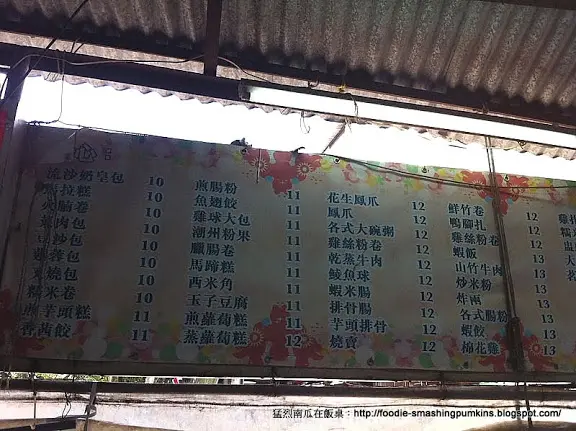 流沙奶皇包 10
馬拉糕 10
火腩卷 10
肉包 10
豆沙包 10
蓮蓉包 10
叉燒包 10
糯米卷 10
煎芋頭糕 11
香茜餃 11
煎腸粉 11
魚翅餃 11
雞球大包 11
潮州粉果 11
臘腸包 11
馬蹄糕 11
西米角 11
玉子豆腐 11
煎蘿蔔糕 11
蒸蘿蔔糕 12
花生鳳爪 12
鳳爪 12
各式大碗粥 12
雞絲粉卷 12
乾蒸牛肉 12
鯪魚球 12
蝦米腸 12
排骨腸 12
芋頭排骨 12
燒賣 12
鮮竹卷 12
鴨腳扎 12
雞絲粉卷 12
蝦飯 13
山竹牛肉 13
炒米粉 13
炸兩 13
各式腸粉 13
蝦餃 13
棉花雞 13
猛烈南瓜在飯桌：http://foodie-smashingpumkins.blogspot.com/